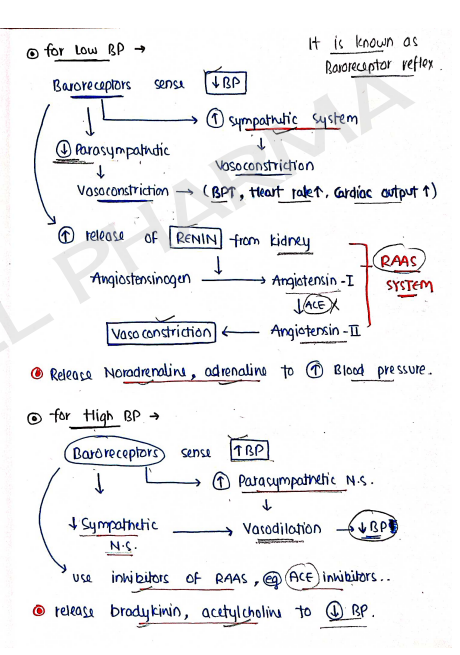 ⊙ for Low BP →
It is known as
Baroreceptor reflex.
Baroreceptors sense ↓BP
↑ sympathetic system
↓ Parasympathetic
Vasoconstriction
Vasoconstriction → (BP↑, Heart rate↑, Cardiac output ↑)
↑ release of RENIN from kidney
RAAS
SYSTEM
Angiostensinogen → Angiotensin -I
↓ ACE X
Vasoconstriction ← Angiotensin -II
Release Noradrenaline, adrenaline to ↑ Blood pressure.
⊙ for High BP →
Baroreceptors sense ↑BP
↑ Parasympathetic N.S.
↓ Sympathetic
N.S.
→ Vasodilation → ↓BP
use inhibitors of RAAS, eg ACE inhibitors..
release bradykinin, acetylcholine to ↓ BP.
PHARMA